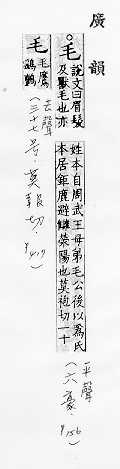 廣韻
毛說文曰眉髮
及獸毛也亦
姓本自周武王母弟毛公後以爲氏
本居鉅鹿避讎滎陽也莫袍切一十
平聲
(六豪,P156
毛
毛鷹
鷂鶉
去聲
(三十七号,莫報切)
P417